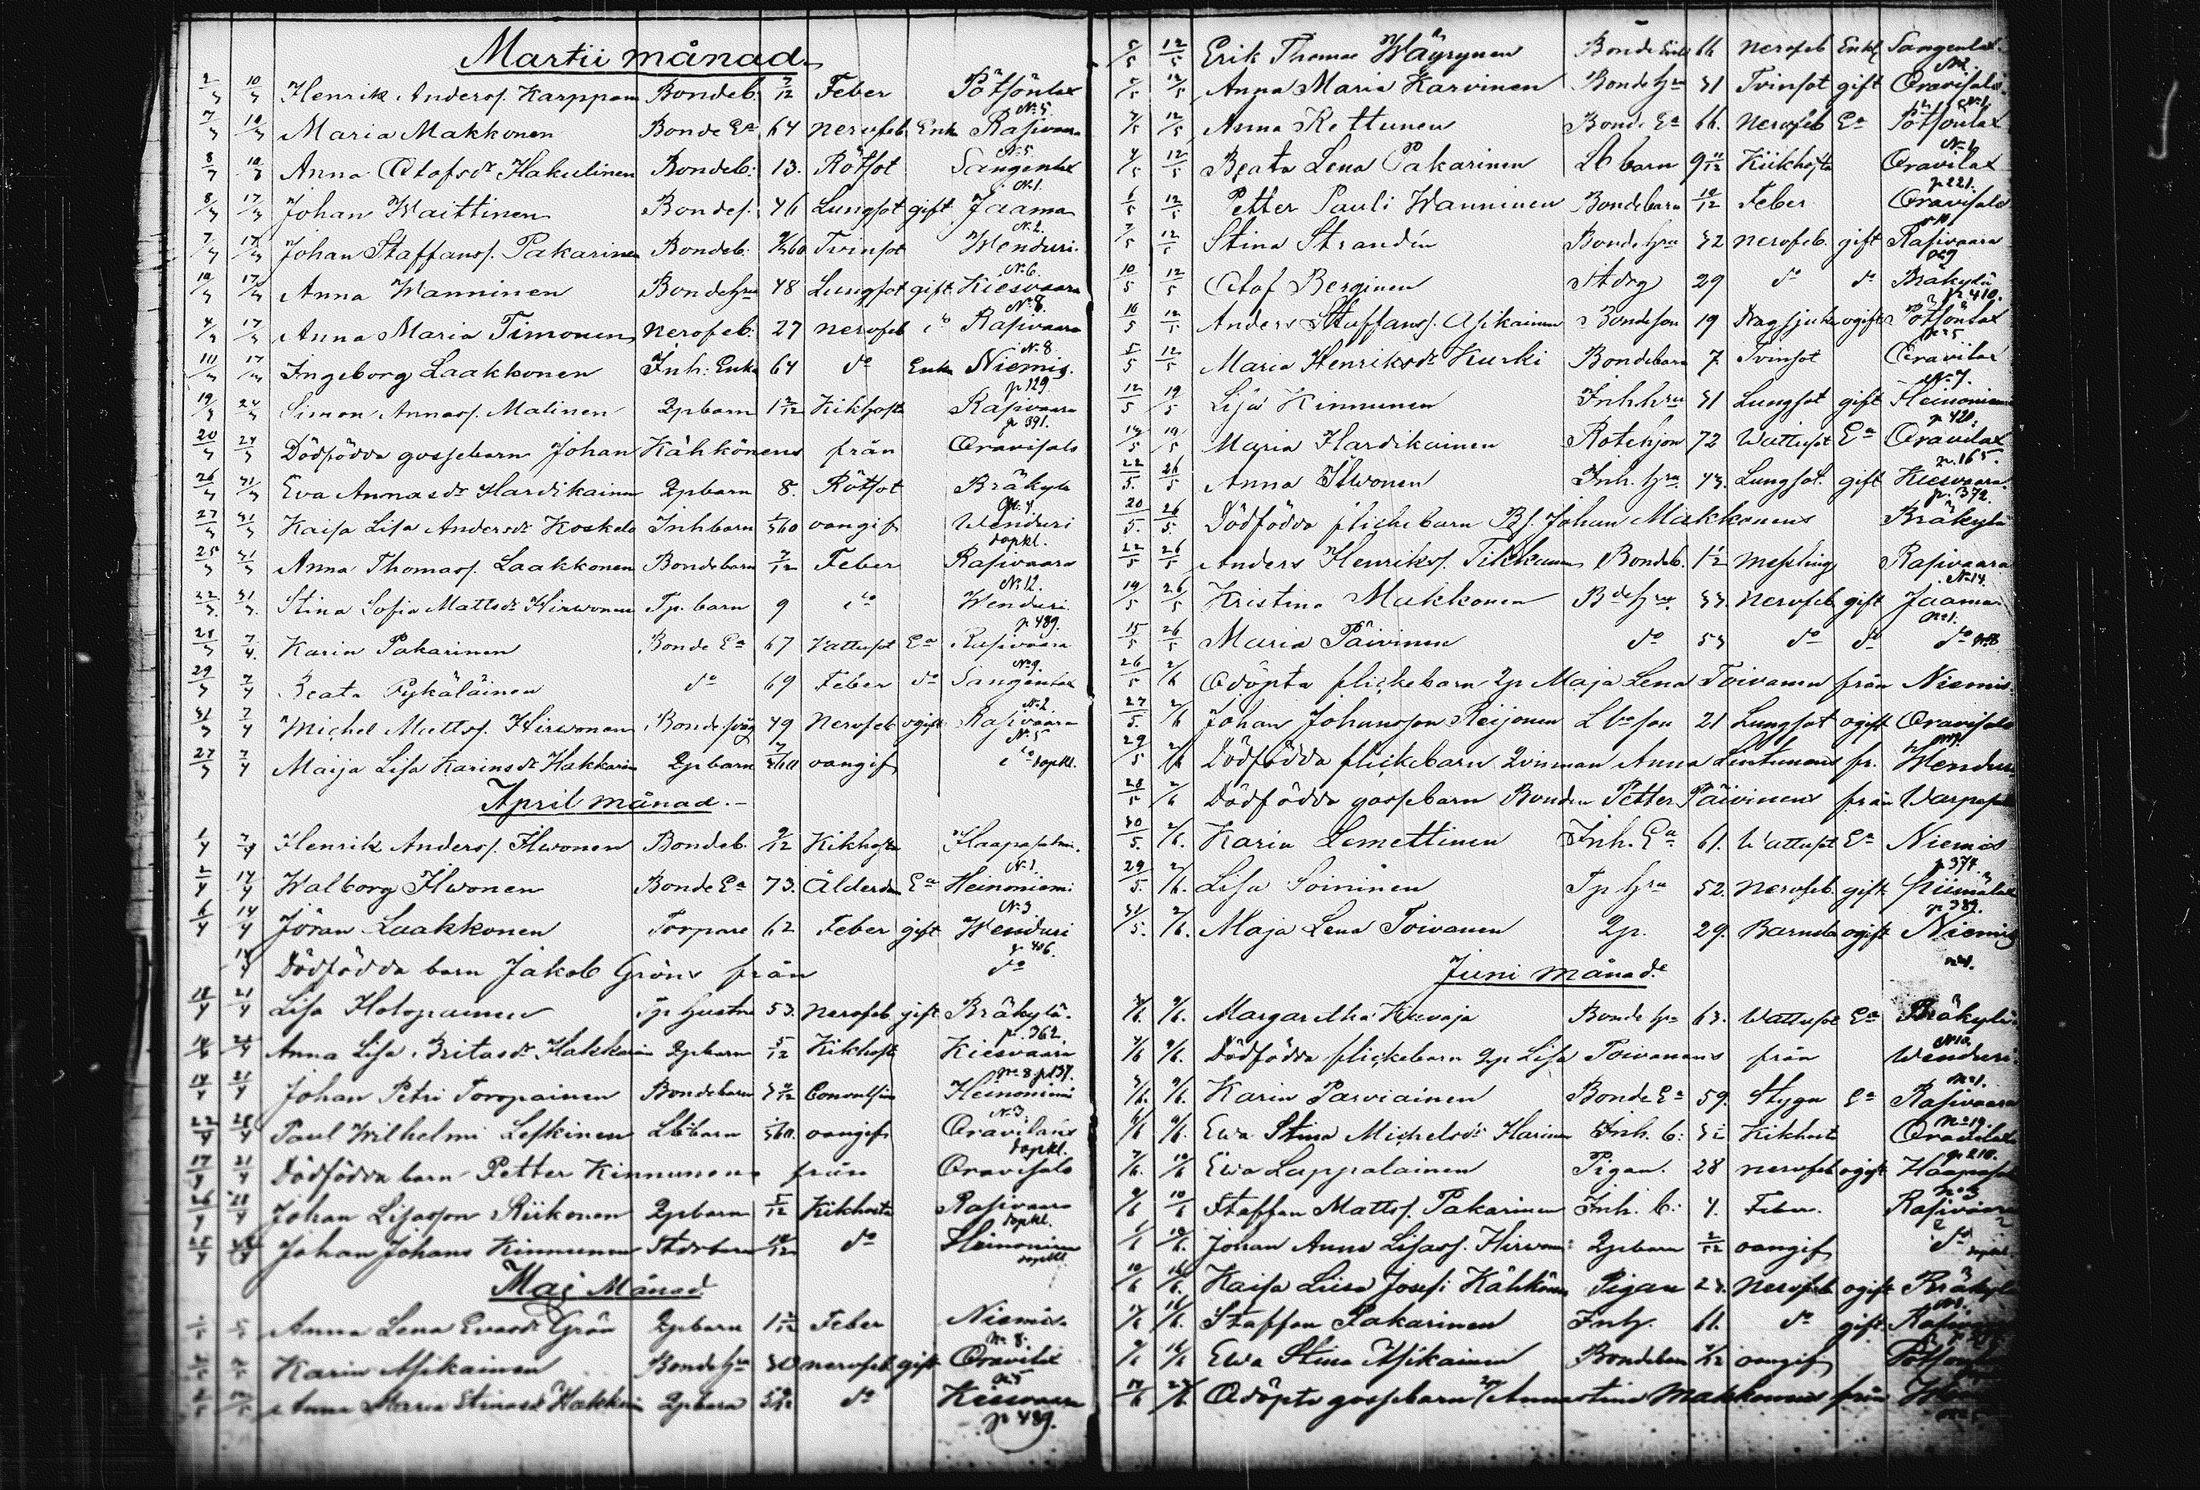 Martii månad.
2/3 10/3 Henrik Anders. Karppan Bondeb. 7/12 Feber Pötsönlax
N:5.
7/3 10/3 Maria Makkonen Bonde Ea 64 nervfeb Enk Rasivaara
N:5.
8/3 10/3 Anna Olofsdr Hakulinen Bondeb: 13. Rötsot Sangenlax
N:1.
8/3 17/3 Johan Waittinen Bondes. 46 Lungsot gift Jaama
N:2.
7/3 17/3 Johan Staffans. Pakarinen Bondeb. Tvinsot Wenduri
N:6.
10/3 17/3 Anna Wanninen Bondehru 48 Lungsot gift Kiesvaara
N:8.
4/3 17/3 Anna Maria Timonen nervfeb. 27 nervfeb do Rasivaara
N:8
17/3 Ingeborg Laakkonen Inh: Enka 64 do Enka Niemis.
p 129.
19/3 24/3 Simon Annas. Malinen Qpbarn 1 2/12 Kikhosta Rasivaara
p 391.
20/3 24/3 Dödfödda gossebarn Johan Kähkönens från Oravisalo
26/3 31/3 Eva Annasdr Hardikainen Qpbarn 8. Rötsot Bräkylä
27/3 31/3 Kaisa Lisa Andersdr Koskelo Inhbarn oangif Wenduri
dopkl.
25/3 31/3 Anna Thomas. Laakkonen Bondebarn 7/12 Feber Rasivaara
N:12.
22/3. 31/3. Stina Sofia Mattsdr Hirwonen Tp. barn 9 do Wenduri
p 489.
28/3 7/4. Karin Pakarinen Bonde Ea 67 Vattusot Ea Rasivaara
N:9.
29/3 7/4 Beata Pykäläinen do 69 Feber do Sangenlax
N:2
31/3 7/4 Michel Matts. Hirwonen 49 Nervfeb ogift Rasivaara
N:5
27/3 7/4 Maija Lisa Karinsdr Hakkarain Qpbarn oangif do dopkl.
April månad.–
1/4 7/4 Henrik Anders. Ilwonen Bondeb. 9/12 Kikhosta Haapasalmi.
N:1.
2/4 14/4 Walborg Ilwonen Bonde Ea 73. Ålderdom Ea Heinoniemi
N:3
6/4 14/4 Jöran Laakkonen Torpare 62 Feber gift Wenduri
p 406.
14/4 Dödfödda barn Jakob Gröns från do
18/4 21/4 Lisa Holopainen Tp hustru 53. nervfeb gift Bräkylä.
p. 362.
21/4 Anna Lisa Britasdr Hakkarain Qpbarn 5/12 Kikhosta Kiesvaara
N:8 p 137.
14/4 21/4 Johan Petri Toropainen Bondebarn Convulsion Heinoniemi
N:3
22/4 28/4 Paul Wilhelmi Leskinen Lbbarn oangif Oravilax
dopkl.
17/4 21/4 Dödfödda barn Petter Kinnunens från Oravisalo
26/4 28/4 Johan Lisasson Riikonen Qpbarn 5/12 Kikhosta Rasivaara
dopkl.
25/4 28/4 Johan Johans Kinnunen 10/12 do Heinoniemi
dopkl.
Maj Månad
Anna Lena Evasdr Grön Qpbarn Feber Niemis
N: 8.
Karin Asikainen Bondehru 30 nervfeb gift Oravilax
N:5
Anna Maria Stinasdr Hakkin Qpbarn do Kiesvaara
p 489.
5/5 12/5 Erik Thomae Wäyrynen Bonde Enkl 66 nervfeb Enkl Sangenlax.
N:2.
5/5 12/5 Anna Maria Karvinen Bondehru 31 Tvinsot gift Oravisalo
N:1.
7/5 12/5 Anna Kettunen Bonde Ea 66. Nervfeb Ea Pötsönlax
N:9
4/5 12/5 Beata Lena Pakarinen Lb barn 9 11/12 Kikhosta Oravilax
p 221.
6/5 12/5 Petter Pauli Wanninen Bondebarn 10/12 Feber Oravisalo
7/5 12/5 Stina Strandén Bondehru 32 nervfeb. gift Rasivaara
10/5 12/5 Olof Berginen 29 do do Bräkylä
p 410.
10/5 12/5 Anders Staffans. Asikainen Bondeson 19 ogift Pötsönlax
5/5 12/5 Maria Henriksdr Kurki Bondebarn 7. Tvinsot Oravilax
N:7.
12/5 19/5 Lisa Kinnunen Inhhru 31 Lungsot gift Heinoniemi
p 420.
14/5 19/5 Maria Hardikainen Rotehjon 72 Wattusot Ea Oravilax
p. 165.
22/5. 26/5 Anna Ilwonen Inh. hru 43. Lungsot. gift Kiesvaara.
p. 372.
20/5. 26/5. Dödfödda flickebarn Bs. Johan Makkonens Bräkylä
22/5 26/5 Anders Henriks. Tikkanen Bondeb. 1 1/2 messling Rasivaara
N:14.
19/5 26/5 Kristina Makkonen Bdehru. 33. Nervfeb gift Jaama
N:1.
15/5 26/5 Maria Päivinen do 53 do do do N:8
26/5 2/6 Odöpta flickebarn Qp Maja Lena Toivanen från Niemis
27/5. 2/6 Johan Johansson Reijonen Lbs son 21 Lungsot ogift Oravisalo
29/5 2/6 Dödfödda flickebarn Qvinnan Anna Lintunens fr. Wenduri
28/5 2/6 Dödfödda gossebarn Bonden Petter Päivinens från Warpasalo
30/5. 2/6. Karin Lemettinen Inh. Ea 61. Wattusot Ea Niemis
p 374.
29/5. 2/6. Lisa Soininen Tp hru 52. nervfeb. gift
p 389.
31/5. 2/6. Maja Lena Toivanen Qp. 29. ogift Niemis
N:1.
Juni månad.
9/6. Margaretha Kuvaja 63. Wattusot Ea Bräkylä
N:10.
9/6. Dödfödda flickebarn Qp Lisa Toivanens från Wenduri
N:1.
9/6. Karin Parviainen Bonde Ea 59. Stygn Ea Rasivaara
N:19.
9/6. Ewa Stina Michelsdr Harinen Inh. b: Kikhosta Oravilax
p 210.
10/6 Ewa Lappalainen Pigan. 28 nervfeb ogift Haapasal
N:3
10/6 Staffan Matts. Pakarinen Inh. b: 4. Feber Rasivaara
10/6. Johan Anna Lisas. Hirvon: Qpbarn 2/12 oangif do dopkl.
16/6. Kaisa Liisa Josefi Kähkönen Pigan 23. Nervfeb ogift Bräkylä
16/6. Staffan Pakarinen Inh. 61. do gift Rasivaara
16/6 Ewa Stina Asikainen Bondebarn oangif Pötsönlax
Odöpta gossebarn Qp Annastina Makkonens från